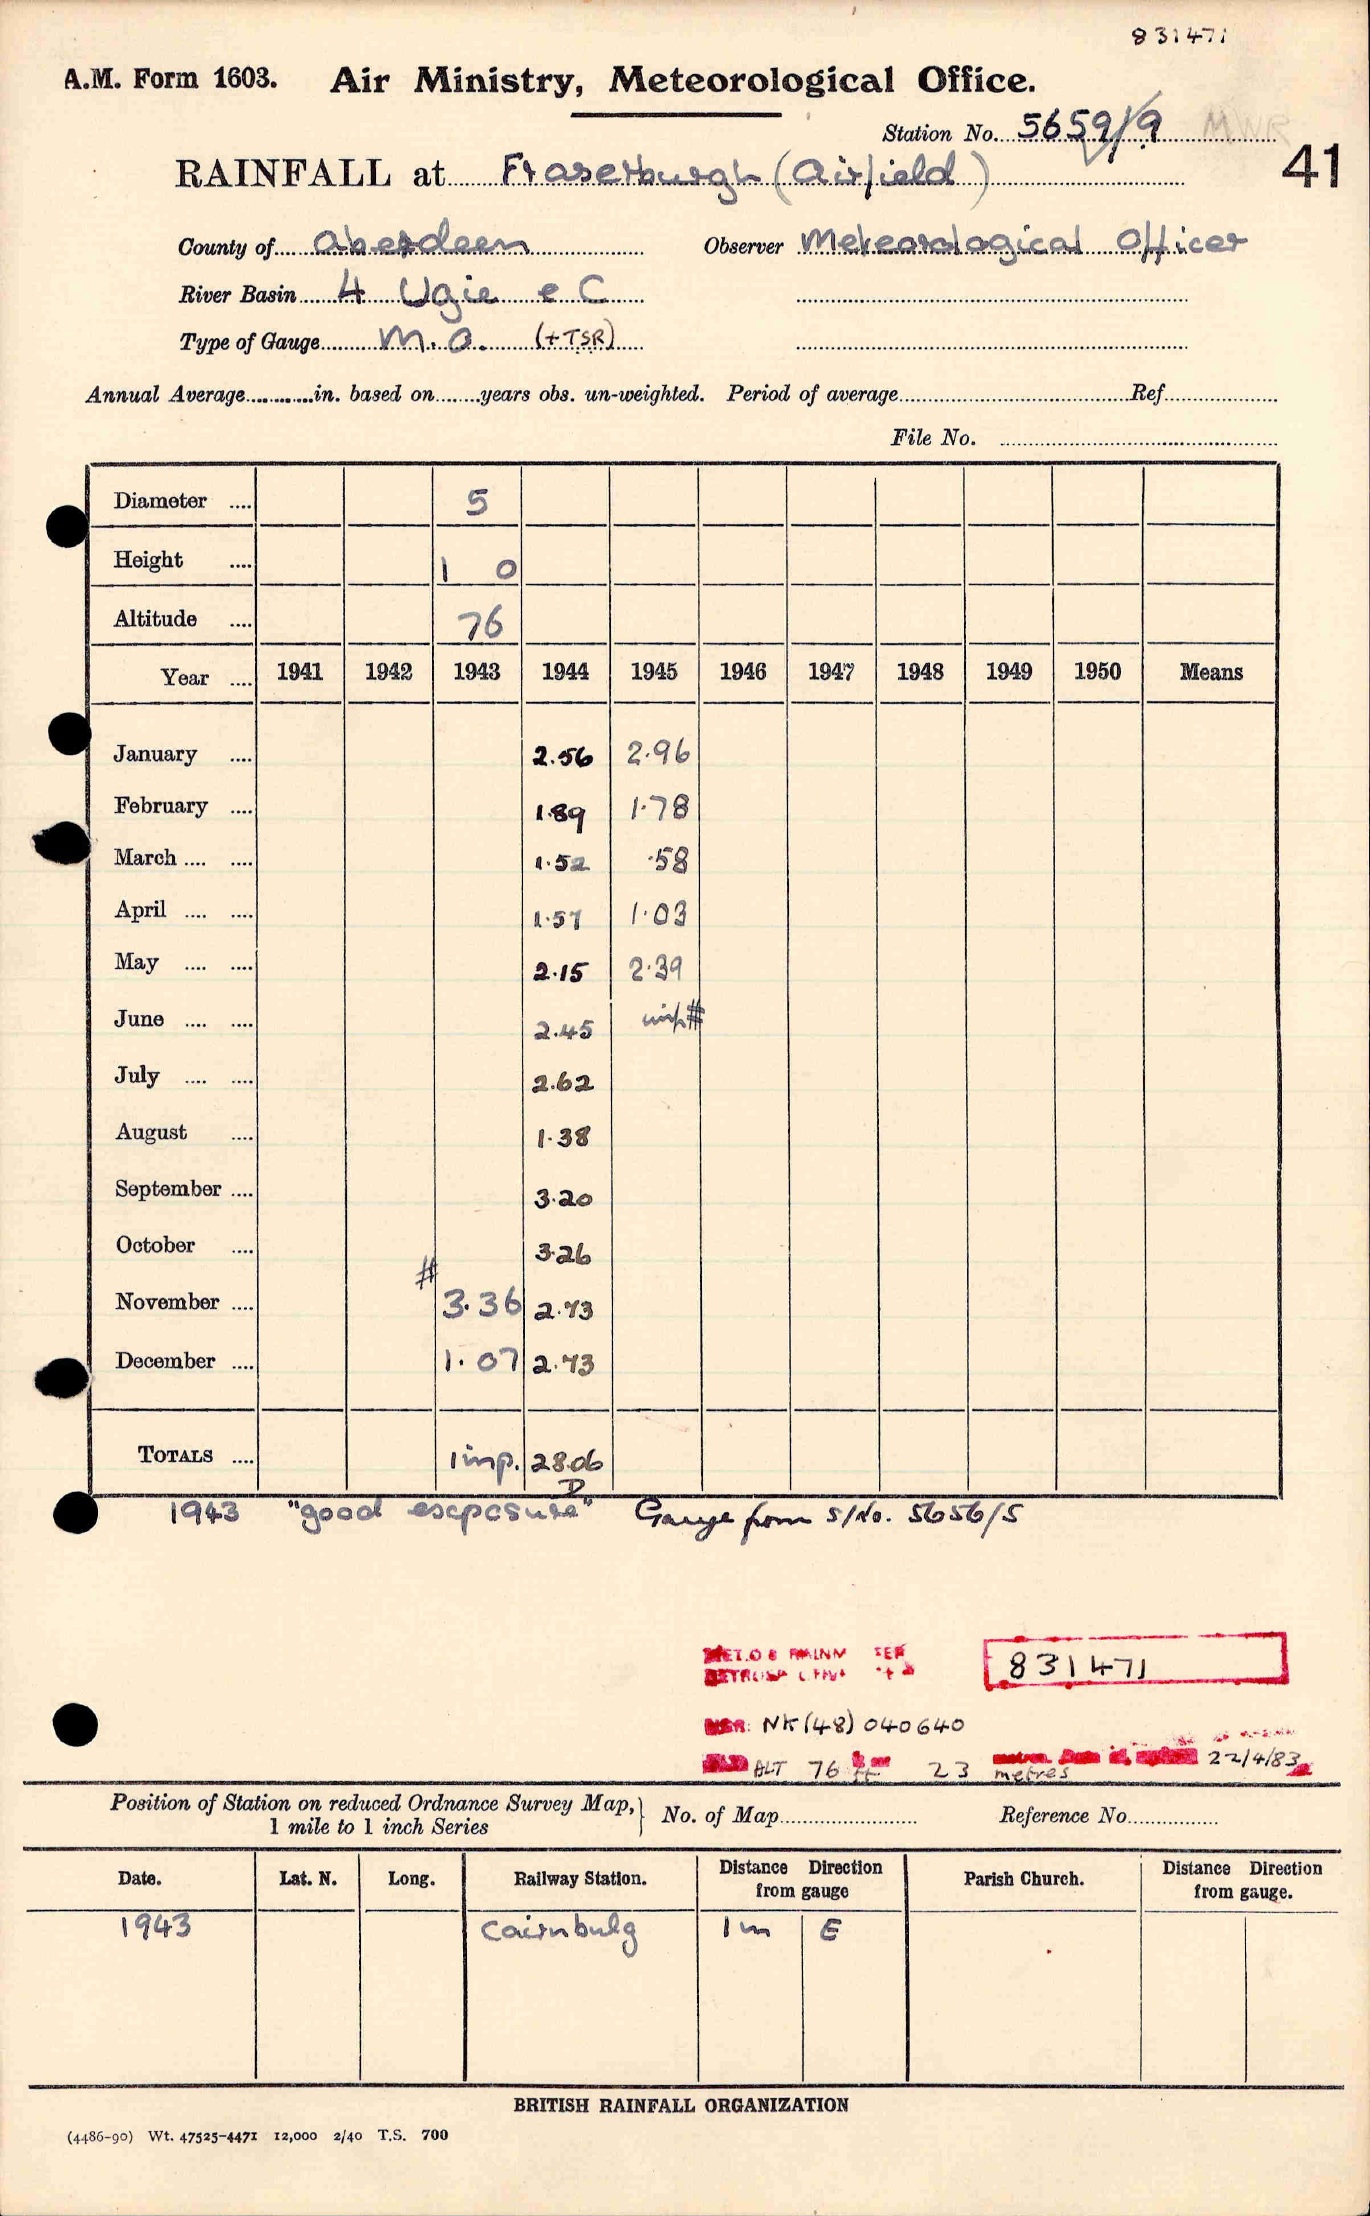 831471
A.M. Form 1603. Air Ministry, Meteorological Office.
Station No. 5659/9 MWR
41
RAINFALL at Fraserburgh (Airfield)
County of Aberdeen Observer Meteorological Officer
River Basin 4 Ugie e C
Type of Gauge M.O. (+TSR)
Annual Average............in. based on........years obs. un-weighted. Period of average............Ref............
File No. ............
Diameter .... 5
Height .... 1 0
Altitude .... 76
Year .... 1941 1942 1943 1944 1945 1946 1947 1948 1949 1950 Means
January .... 2.56 2.96
February .... 1.89 1.78
March .... .... 1.52 .58
April .... .... 1.57 1.03
May .... .... 2.15 2.39
June .... .... 2.45 imp #
July .... .... 2.62
August .... 1.38
September .... 3.20
October .... 3.26
November .... # 3.36 2.73
December .... 1.07 2.73
TOTALS .... imp. 28.06
D
1943 "good exposure" Gauge from S/No. 5656/5
MET.O 8
831471
NGR: NK(48) 040640
ALT 76 ft 23 metres 22/4/83
Position of Station on reduced Ordnance Survey Map, 1 mile to 1 inch Series } No. of Map............ Reference No............
Date. Lat. N. Long. Railway Station. Distance Direction from gauge Parish Church. Distance Direction from gauge.
1943 Cairnbulg 1m E
BRITISH RAINFALL ORGANIZATION
(4486-90) Wt. 47525-4471 12,000 2/40 T.S. 700